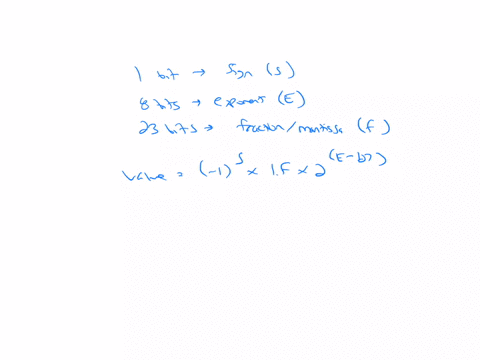 1 bit → sign (s)
8 bits → exponent (E)
23 bits → fraction/mantissa (F)
value = (-1)^s × 1.F × 2^(E-127)